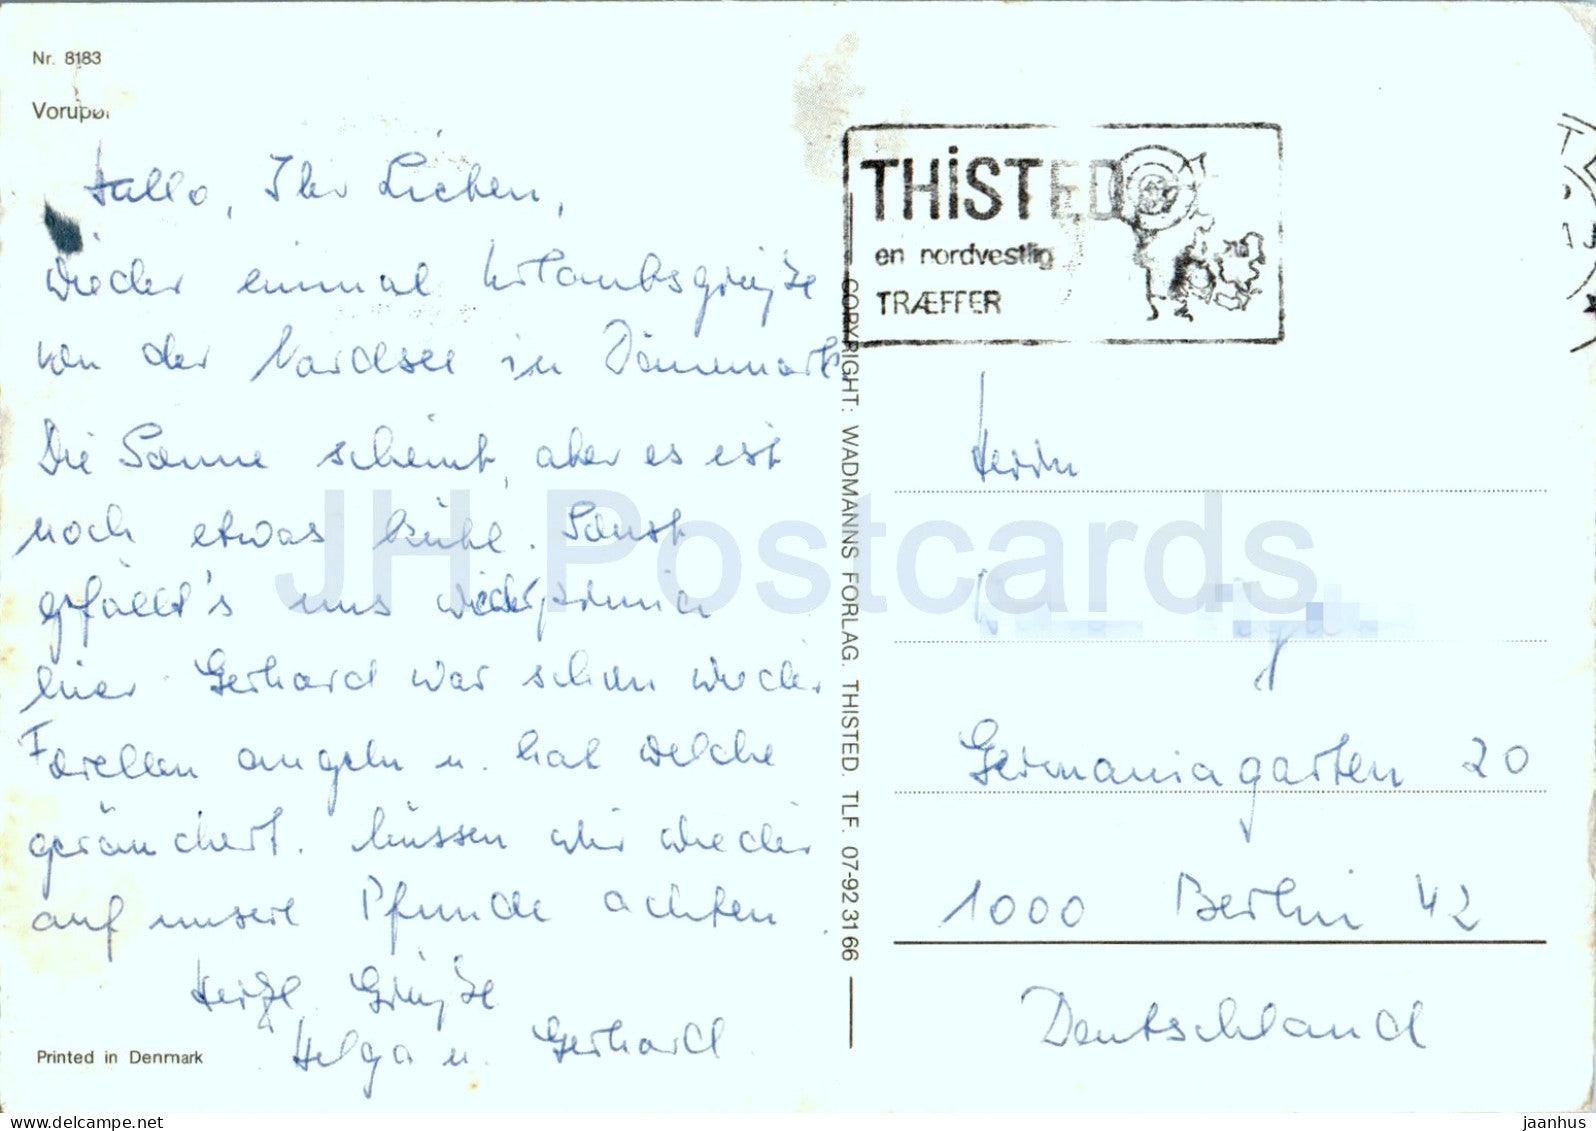 Nr. 8183
Vorupør
Hallo, Ihr Lieben,
wieder einmal Urlaubsgrüße
von der Nordsee in Dänemark.
Die Sonne scheint, aber es ist
noch etwas kühl. Sonst
gefällt's uns wieder prima
hier. Gerhard war schon wieder
Forellen angeln u. hat welche
geräuchert. Müssen wir wieder
auf unsere Pfunde achten.
Herzl. Grüße
Helga u. Gerhard
Printed in Denmark
COPYRIGHT: WADMANNS FORLAG. THISTED. TLF. 07-92 31 66
THiSTED
en nordvestlig
TRÆFFER
Herrn
Germaniagarten 20
1000 Berlin 42
Deutschland
JH Postcards
jaanhus